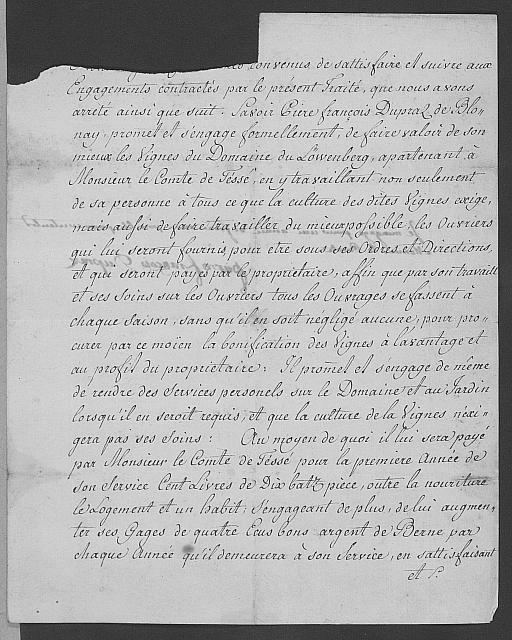 convenus de sattisfaire et suivre aux
Engagements contractés par le présent Traité, que nous avons
arreté ainsi que suit. Savoir Piere françois Dupraz de Blo-
nay, promet et s'engage formellement, de faire valoir de son
mieux les Vignes du Domaine du Löwenberg, apartenant à
Monsieur le Comte de Tessé, en y travaillant non seulement
de sa personne à tous ce que la culture des dites Vignes exige,
mais aussi de faire travailler du mieux possible les Ouvriers
qui lui seront fournis pour etre sous ses Ordres et Directions,
et qui seront payés par le proprietaire, affin que par son travaill
et ses Soins sur les Ouvriers tous les Ouvrages se fassent à
chaque Saison, sans qu'il en soit négligé aucune, pour pro-
curer par ce moïen la bonification des Vignes à l'avantage et
au profit du proprietaire: Il promet et s'engage de même
de rendre des Services personels sur le Domaine et au Jardin
lorsqu'il en seroit requis, et que la culture de la Vignes n'exi-
gera pas ses Soins: Au moyen de quoi il lui sera payé
par Monsieur le Comte de Tessé pour la premiere Année de
son Service Cent Livres de Dix batz pièce, outre la nouriture
le Logement et un habit, s'engageant de plus, de lui augmen-
ter ses Gages de quatre Ecus bons argent de Berne par
chaque Année qu'il demeurera à son Service, en sattisfaisant
et